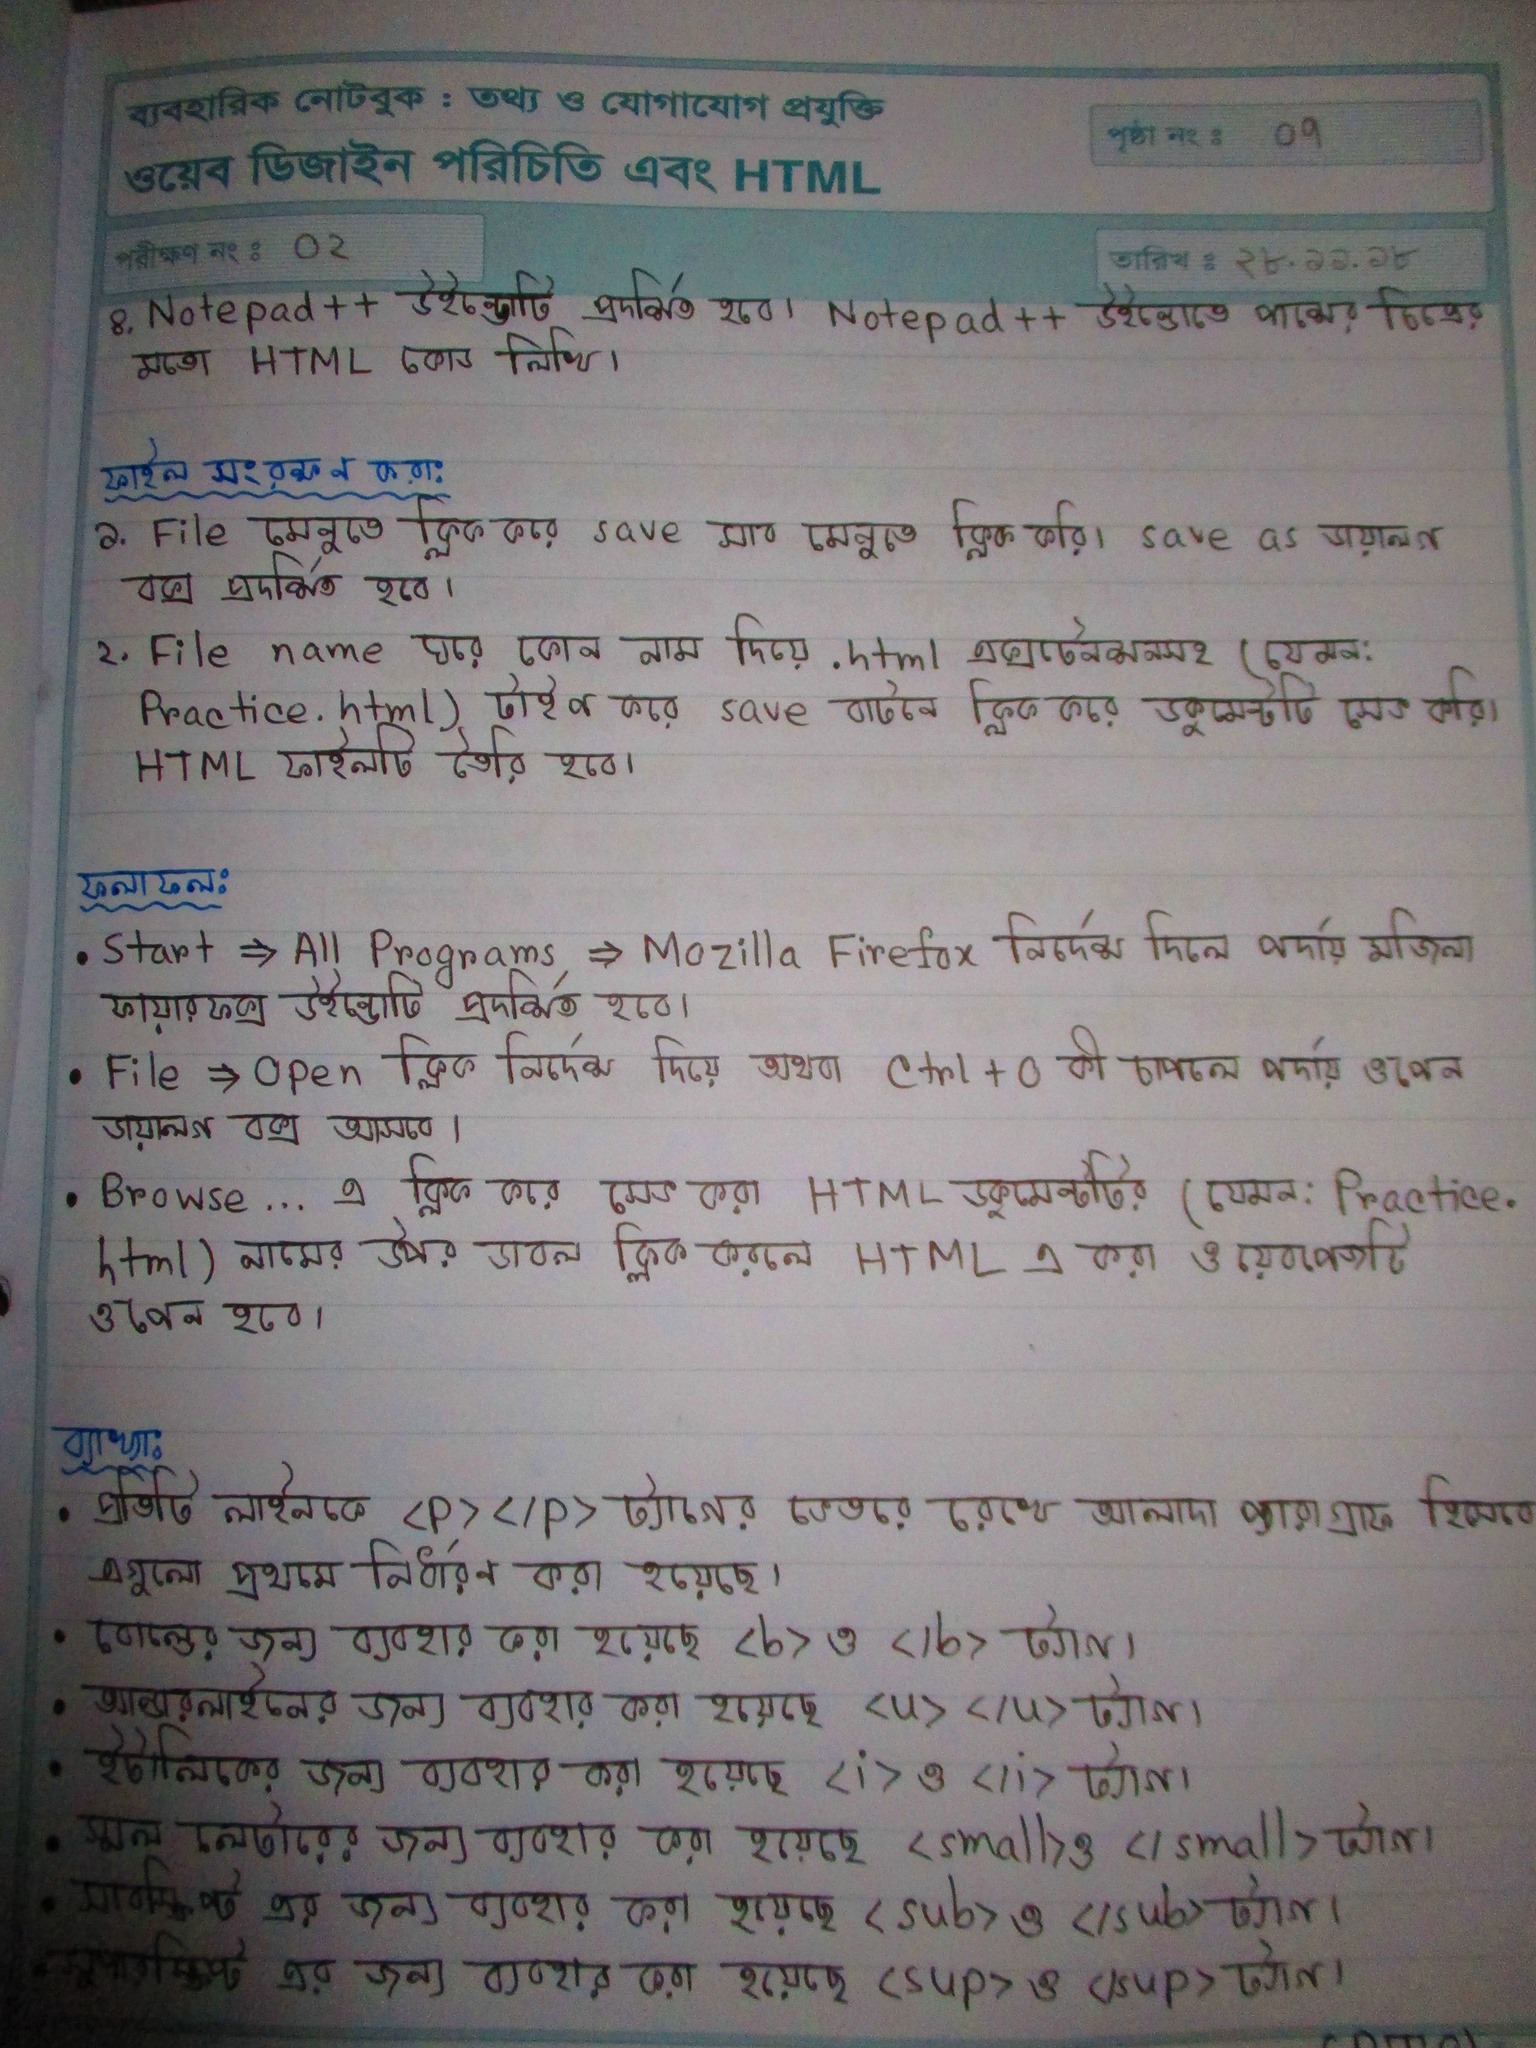 ব্যবহারিক নোটবুক : তথ্য ও যোগাযোগ প্রযুক্তি
ওয়েব ডিজাইন পরিচিতি এবং HTML
পৃষ্ঠা নং : ০৭
পরীক্ষণ নং : ০২
তারিখ : ২৮.১১.১৮
৪. Notepad++ উইন্ডোটি প্রদর্শিত হবে। Notepad++ উইন্ডোতে পাশের চিত্রের
মতো HTML কোড লিখি।
ফাইল সংরক্ষন করাঃ
১. File মেনুতে ক্লিক করে save সাব মেনুতে ক্লিক করি। save as ডায়ালগ
বক্স প্রদর্শিত হবে।
২. File name ঘরে কোন নাম দিয়ে .html এক্সটেনশনসহ (যেমন:
Practice.html) টাইপ করে save বাটনে ক্লিক করে ডকুমেন্টটি সেভ করি।
HTML ফাইলটি তৈরি হবে।
ফলাফলঃ
• Start ⇒ All Programs ⇒ Mozilla Firefox নির্দেশ দিলে পর্দায় মজিলা
ফায়ারফক্স উইন্ডোটি প্রদর্শিত হবে।
• File ⇒ Open ক্লিক নির্দেশ দিয়ে অথবা Ctrl + O কী চাপলে পর্দায় ওপেন
ডায়ালগ বক্স আসবে।
• Browse... এ ক্লিক করে সেভ করা HTML ডকুমেন্টটির (যেমন: Practice.
html) নামের উপর ডাবল ক্লিক করলে HTML এ করা ওয়েবপেজটি
ওপেন হবে।
ব্যাখ্যাঃ
• প্রতিটি লাইনকে <p></p> ট্যাগের ভেতরে রেখে আলাদা প্যারাগ্রাফ হিসেবে
এগুলো প্রথমে নির্ধারণ করা হয়েছে।
• বোল্ডের জন্য ব্যবহার করা হয়েছে <b> ও </b> ট্যাগ।
• আন্ডারলাইনের জন্য ব্যবহার করা হয়েছে <u> </u> ট্যাগ।
• ইটালিকের জন্য ব্যবহার করা হয়েছে <i> ও </i> ট্যাগ।
• স্মল লেটারের জন্য ব্যবহার করা হয়েছে <small>ও </small> ট্যাগ।
• সাবস্ক্রিপ্ট এর জন্য ব্যবহার করা হয়েছে <sub> ও </sub> ট্যাগ।
• সুপারস্ক্রিপ্ট এর জন্য ব্যবহার করা হয়েছে <sup> ও </sup> ট্যাগ।